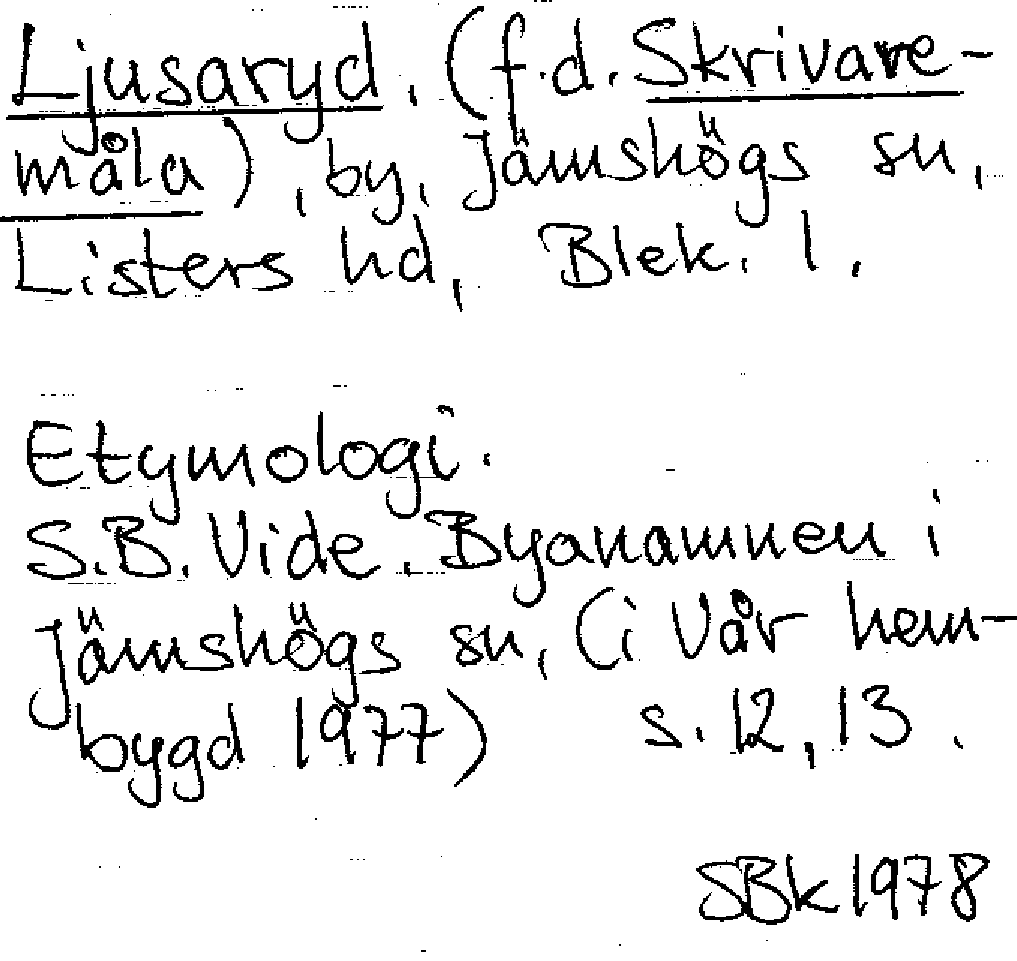 Ljusaryd. (f.d. Skrivare-
måla), by, Jämshögs sn,
Listers hd, Blek. l.
Etymologi.
S.B. Vide. Byanamnen i
Jämshögs sn, (i Vår hem-
bygd 1977) s. 12, 13.
SBk 1978